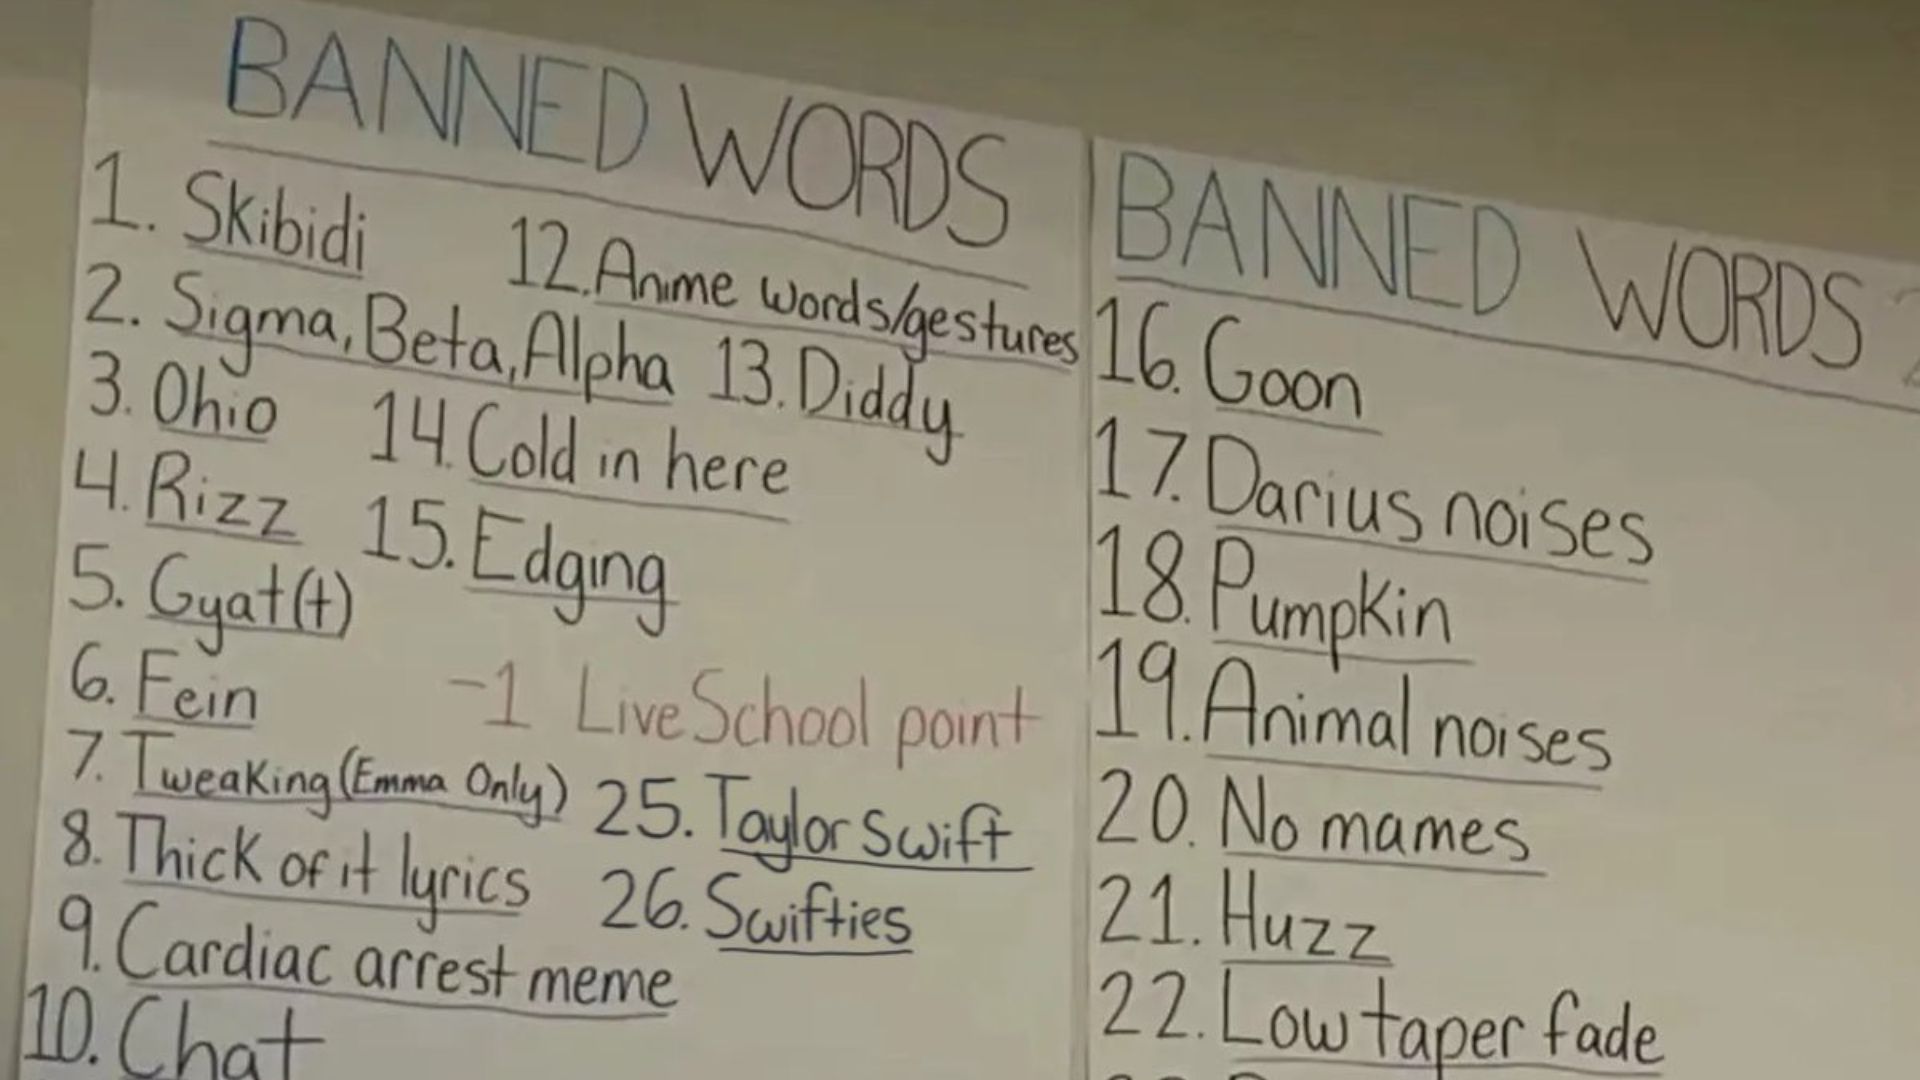 BANNED WORDS
1. Skibidi
2. Sigma, Beta, Alpha
3. Ohio
4. Rizz
5. Gyat(t)
6. Fein
7. Tweaking (Emma Only)
8. Thick of it lyrics
9. Cardiac arrest meme
10. Chat
12. Anime words/gestures
13. Diddy
14. Cold in here
15. Edging
-1 LiveSchool point
25. Taylor Swift
26. Swifties
BANNED WORDS
16. Goon
17. Darius noises
18. Pumpkin
19. Animal noises
20. No mames
21. Huzz
22. Low taper fade